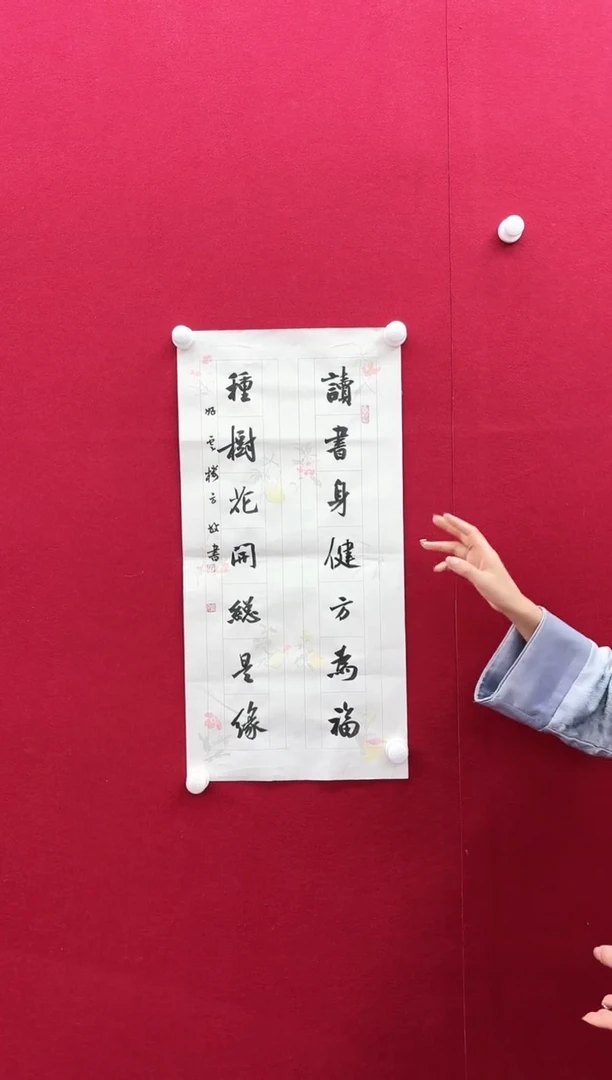 讀書身健方為福
種樹花開總是緣
書